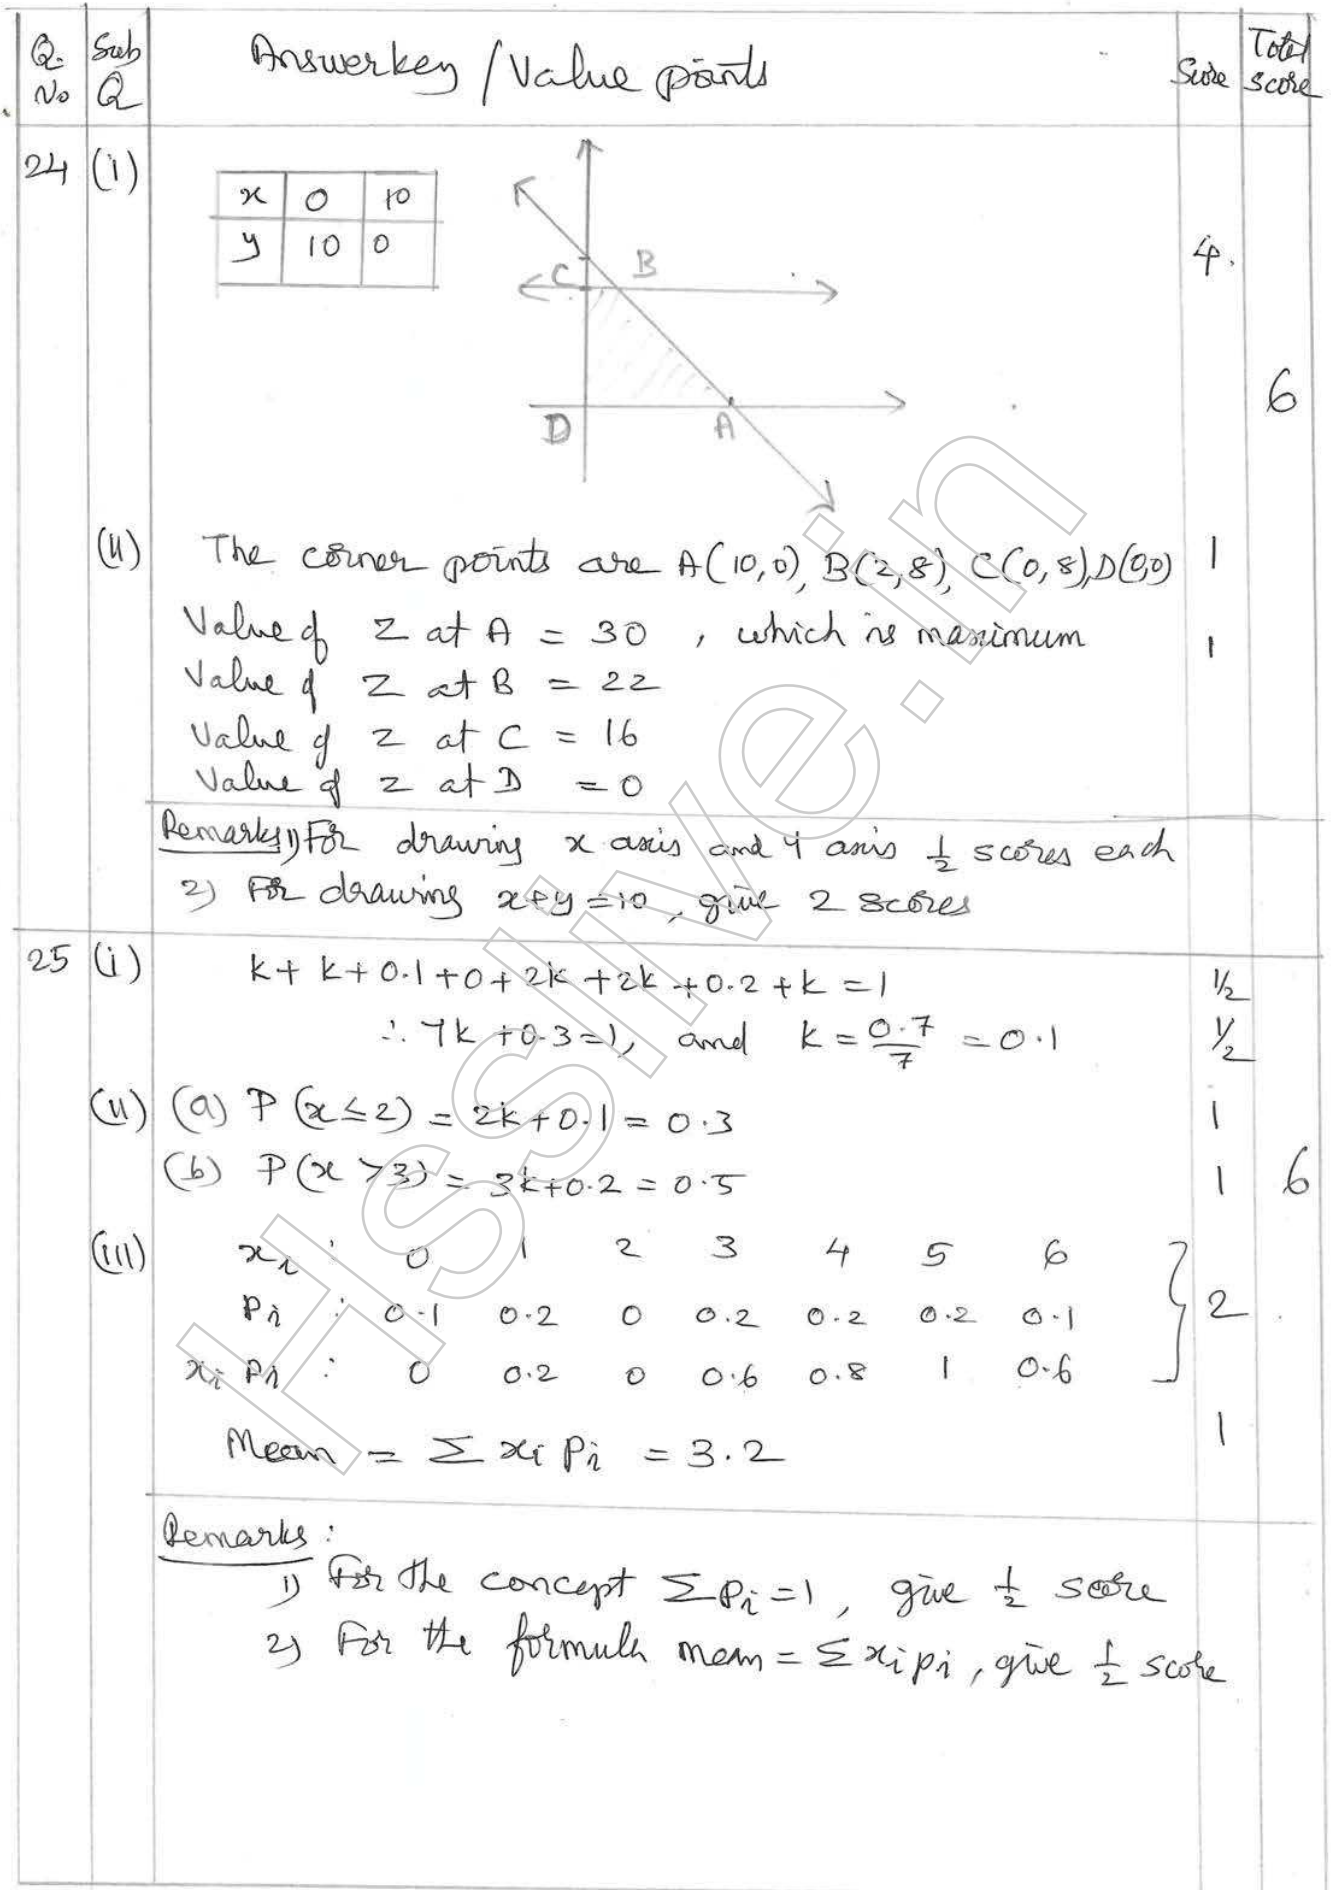 Q. No Sub Q Answerkey / Value points Score Total score
24 (i)
x 0 10
y 10 0
4.
C B
6
D A
(ii) The corner points are A(10,0), B(2,8), C(0,8), D(0,0) 1
Value of Z at A = 30 , which is maximum 1
Value of Z at B = 22
Value of Z at C = 16
Value of Z at D = 0
Remarks 1) For drawing x axis and Y axis 1/2 scores each
2) For drawing x+y=10, give 2 scores
25 (i) k+k+0.1+0+2k+2k+0.2+k=1 1/2
∴ 7k+0.3=1, and k = 0.7/7 = 0.1 1/2
(ii) (a) P(x≤2) = 2k+0.1 = 0.3 1
(b) P(x>3) = 3k+0.2 = 0.5 1 6
(iii) xi : 0 1 2 3 4 5 6
Pi : 0.1 0.2 0 0.2 0.2 0.2 0.1 2
xi Pi : 0 0.2 0 0.6 0.8 1 0.6
Mean = Σ xi Pi = 3.2 1
Remarks :
1) For the concept ΣPi=1, give 1/2 score
2) For the formula mean = Σxipi, give 1/2 score
Hsslive.in